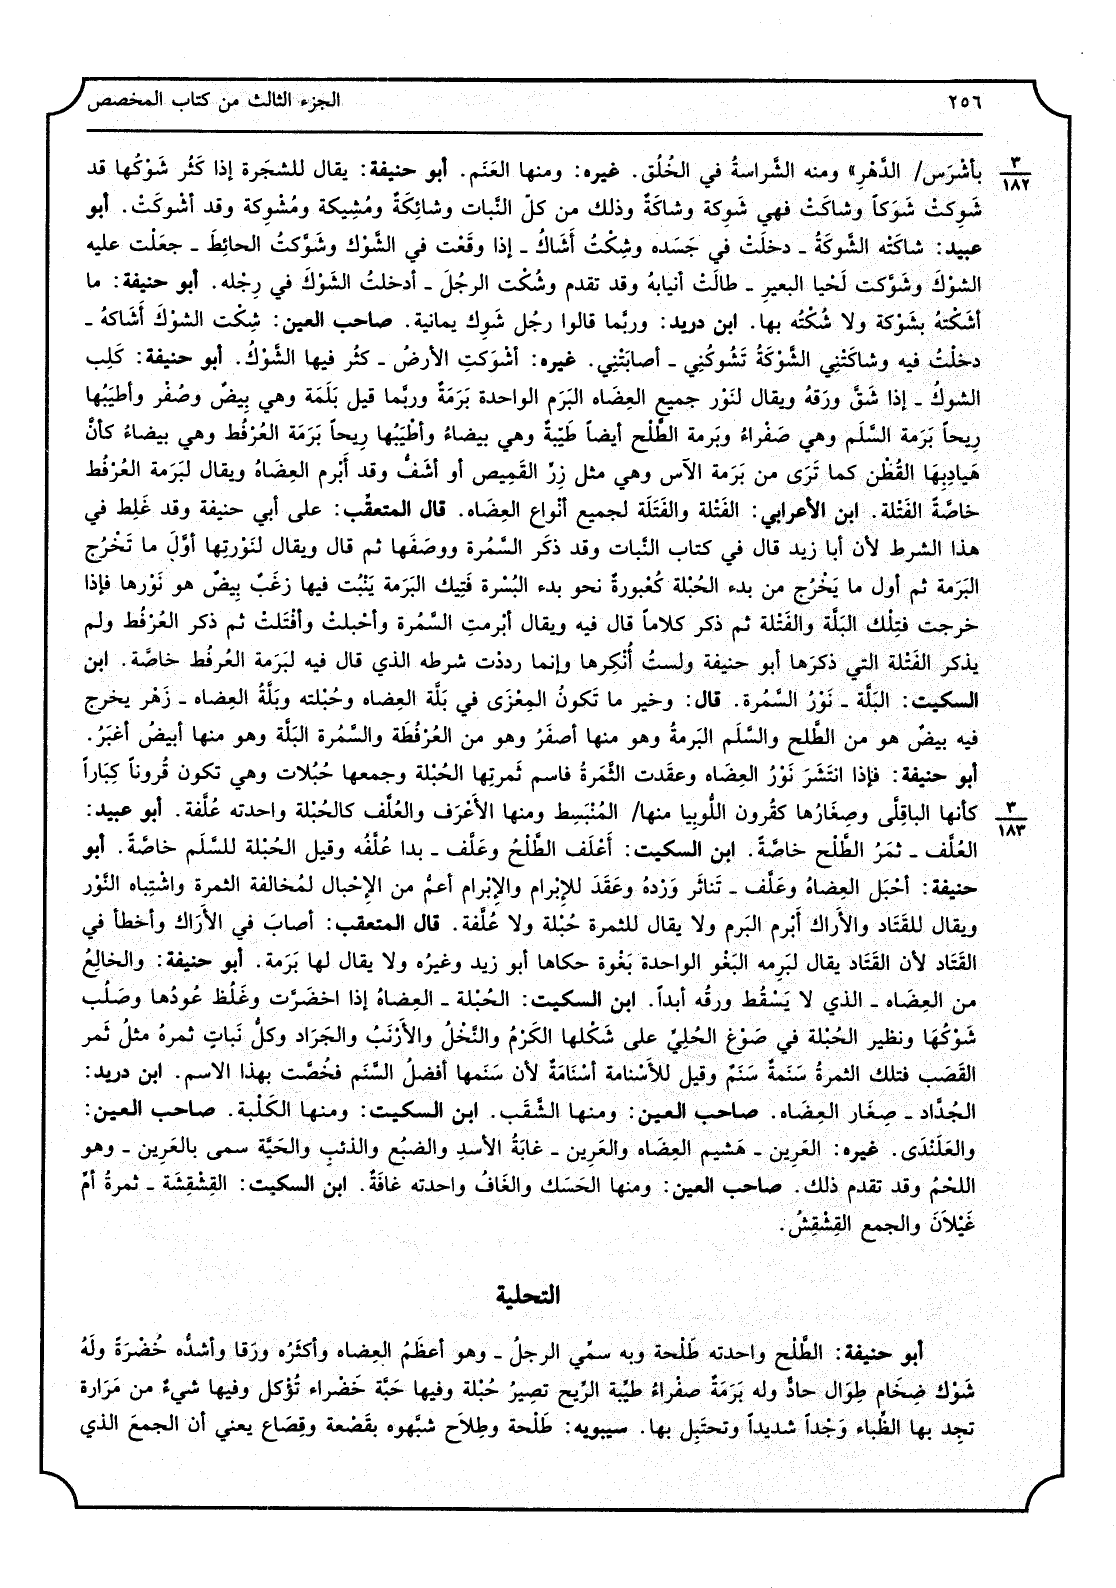 ٢٥٦ الجزء الثالث من كتاب المخصص
٣
١٨٢
بأشْرَس/ الدَّهْرِ» ومنه الشَّراسةُ في الخُلُق. غيره: ومنها العَنَم. أبو حنيفة: يقال للشجَرة إذا كَثُر شَوْكُها قد
شَوِكتْ شَوَكاً وشاكَتْ فهي شَوِكة وشاكَةٌ وذلك من كلّ النَّبات وشائِكَةٌ ومُشِيكة ومُشْوِكة وقد أشْوكَتْ. أبو
عبيد: شاكَتْه الشَّوكَةُ ـ دخلَتْ في جَسَده وشِكْتُ أَشَاكُ ـ إذا وقَعْت في الشَّوْك وشَوَّكتُ الحائِطَ ـ جعَلْت عليه
الشوْكَ وشَوَّكت لَحْيا البعيرِ ـ طالَتْ أنيابهُ وقد تقدم وشُكْت الرجُلَ ـ أدخلتُ الشَوْكَ في رِجْله. أبو حنيفة: ما
أشَكْتهُ بشَوْكة ولا شُكْتُه بها. ابن دريد: وربَّما قالوا رجُل شَوِك يمانية. صاحب العين: شِكْت الشوكَ أشَاكهُ ـ
دخلْتُ فيه وشاكَتْنِي الشَّوْكَةُ تَشُوكُنِي ـ أصابَتْنِي. غيره: أشْوَكتِ الأرضُ ـ كثُر فيها الشَّوْكُ. أبو حنيفة: كَلِب
الشوكُ ـ إذا شَقَّ ورَقهُ ويقال لنَوْر جميعِ العِضَاه البَرَم الواحدة بَرَمةٌ وربَّما قيل بَلَمَة وهي بِيضٌ وصُفْر وأطيَبُها
رِيحاً بَرَمة السَّلَم وهي صَفْراءُ وبَرمة الطَّلْح أيضاً طَيِّبةٌ وهي بيضاءُ وأطْيَبُها رِيحاً بَرَمَة العُرْفُط وهي بيضاءُ كأنَّ
هَيادِبِهَا القُطْن كما تَرَى من بَرَمة الآس وهي مثل زِرِّ القَمِيص أو أشَفُّ وقد أَبْرم العِضَاهُ ويقال لبَرَمة العُرْفُط
خاصَّةً الفَتْلة. ابن الأعرابي: الفَتْلة والفَتَلَة لجميع أنْواع العِضَاه. قال المتعقِّب: على أبي حنيفة وقد غَلِط في
هذا الشرط لأن أبا زيد قال في كتاب النَّبات وقد ذكَر السَّمُرة ووصَفَها ثم قال ويقال لنَوْرتِها أوَّلَ ما تَخْرُج
البَرَمة ثم أول ما يَخْرُج من بدء الحُبْلة كُعْبورةٌ نحو بدء البُسْرة فَتِيك البَرَمة يَنْبُت فيها زغَبٌ بِيضٌ هو نَوْرها فإذا
خرجت فتِلْك البَلَّة والفَتْلة ثم ذكر كلاماً قال فيه ويقال أبْرمتِ السَّمُرة وأحْبلتْ وأفْتَلتْ ثم ذكر العُرْفُط ولم
يذكر الفَتْلة التي ذكرَها أبو حنيفة ولستُ أُنْكِرها وإنما رددْت شرطه الذي قال فيه لبَرَمة العُرفط خاصَّة. ابن
السكيت: البَلَّة ـ نَوْرُ السَّمُرة. قال: وخير ما تَكونُ المِعْزَى في بَلَّة العِضاه وحُبْلته وبَلَّةُ العِضاه ـ زَهْر يخرج
فيه بيضٌ هو من الطَّلح والسَّلَم البَرمةُ وهو منها أصفَرُ وهو من العُرْفُطَة والسَّمُرة البَلَّة وهو منها أبيضُ أغبَرُ.
أبو حنيفة: فإذا انتَشَرَ نَوْرُ العِضَاه وعقَدت الثَّمَرةُ فاسم ثَمرتِها الحُبْلة وجمعها حُبُلات وهي تكون قُروناً كِبَاراً
٣
١٨٣
كأنها الباقِلَّى وصِغَارُها كقُرون اللُّوبِيا منها/ المُنْبَسِط ومنها الأَعْرَف والعُلَّف كالحُبْلة واحدته عُلَّفة. أبو عبيد:
العُلَّف ـ ثمَرُ الطَّلْح خاصَّةً. ابن السكيت: أَعْلَف الطَّلْحُ وعَلَّف ـ بدا عُلَّفُه وقيل الحُبْلة للسَّلَم خاصَّة. أبو
حنيفة: أحْبَل العِضاهُ وعَلَّف ـ تَناثَر وَرْدهُ وعَقَدَ للإِبْرام والإِبْرام أعمُّ من الإِحْبال لمُخالفة الثمرة واشْتِباه النَّوْر
ويقال للقَتَاد والأَراك أَبْرم البَرم ولا يقال للثمرة حُبْلة ولا عُلَّفة. قال المتعقب: أصابَ في الأَرَاك وأخطأ في
القَتَاد لأن القَتَاد يقال لبَرِمه البَغْو الواحدة بَغْوة حكاها أبو زيد وغيرُه ولا يقال لها بَرَمة. أبو حنيفة: والخالِعُ
من العِضَاه ـ الذي لا يَسْقُط ورقُه أبداً. ابن السكيت: الحُبْلة ـ العِضاهُ إذا اخضَرَّت وغَلُظ عُودُها وصَلُب
شَوْكُهَا ونظير الحُبْلة في صَوْغ الحُلِيِّ على شَكْلها الكَرْمُ والنَّخْلُ والأَرْنَبُ والجَرَاد وكلُّ نَباتٍ ثمرهُ مثلُ ثَمر
القَصَب فتلك الثمرةُ سَنَمةٌ سَنَمٌ وقيل للأَسْنامة أسْنَامَةٌ لأن سَنَمها أفضلُ السَّنَم فخُصَّت بهذا الاسم. ابن دريد:
الجُدَّاد ـ صِغَار العِضَاه. صاحب العين: ومنها الشَّقَب. ابن السكيت: ومنها الكَلْبة. صاحب العين:
والعَلَنْدَى. غيره: العَرِين ـ هَشيم العِضَاه والعَرِين ـ غابَةُ الأسدِ والضبُع والذئبِ والحَيَّة سمى بالعَرِين ـ وهو
اللحْمُ وقد تقدم ذلك. صاحب العين: ومنها الحَسَك والغَافُ واحدته غافَةٌ. ابن السكيت: القِشْقِشَة ـ ثمرةُ أمِّ
غَيْلاَنَ والجمع القِشْقِشُ.
التحلية
أبو حنيفة: الطَّلْح واحدته طَلْحة وبه سمِّي الرجلُ ـ وهو أعظَمُ العِضاه وأكثَرُه ورَقا وأشدُّه خُضْرَةً ولَهُ
شَوْك ضِخَام طِوَال حادٌّ وله بَرَمَةٌ صفراءُ طيِّبة الرِّيح تصِيرُ حُبْلة وفيها حَبَّة خَضْراء تُؤْكل وفيها شيءٌ من مَرَارة
تجِد بها الظِّباء وَجْداً شديداً وتحتَبِل بها. سيبويه: طَلْحة وطِلاَح شبَّهوه بقَصْعة وقِصَاع يعني أن الجمعَ الذي